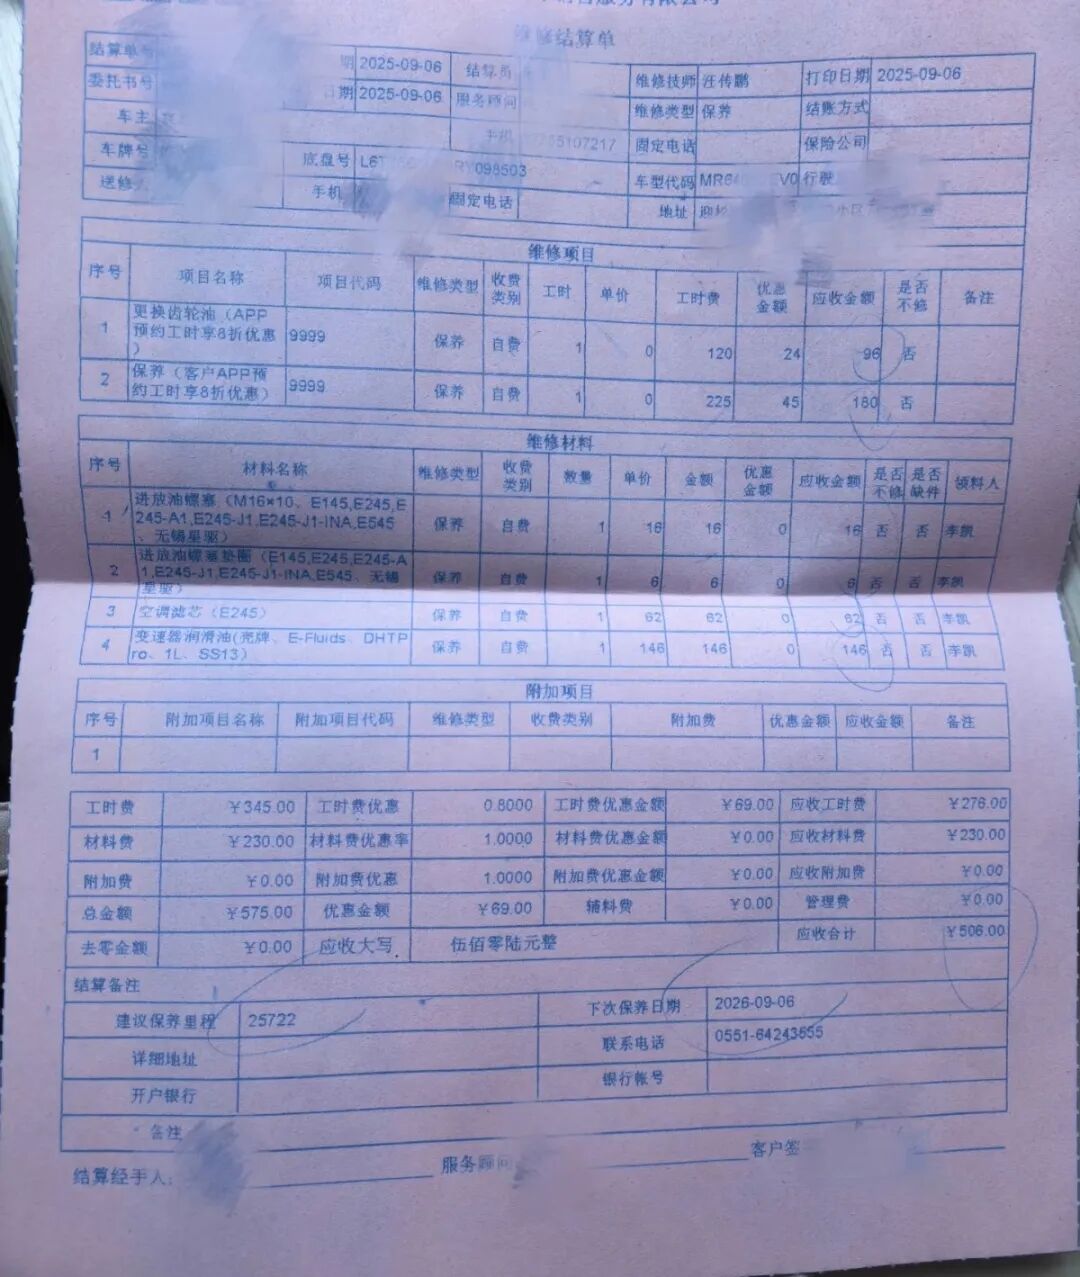 售服务有限公司
维修结算单
结算单号 期 2025-09-06 结算员 维修技师 汪传鹏 打印日期 2025-09-06
委托书号 日期 2025-09-06 服务顾问 维修类型 保养 结账方式
车主 手机 55107217 固定电话 保险公司
车牌号 底盘号 L6T RY098503 车型代码 MR64 EV0 行驶
送修人 手机 固定电话 地址
维修项目
序号 项目名称 项目代码 维修类型 收费类别 工时 单价 工时费 优惠金额 应收金额 是否不修 备注
1 更换齿轮油（APP预约工时享8折优惠） 9999 保养 自费 1 0 120 24 96 否
2 保养（客户APP预约工时享8折优惠） 9999 保养 自费 1 0 225 45 180 否
维修材料
序号 材料名称 维修类型 收费类别 数量 单价 金额 优惠金额 应收金额 是否不修 是否缺件 领料人
1 进放油螺塞（M16×10、E145,E245,E245-A1,E245-J1,E245-J1-INA,E545、无锡星驱） 保养 自费 1 16 16 0 16 否 否 李凯
2 进放油螺塞垫圈（E145,E245,E245-A1,E245-J1,E245-J1-INA,E545、无锡星驱） 保养 自费 1 6 6 0 6 否 否 李凯
3 空调滤芯（E245） 保养 自费 1 62 62 0 62 否 否 李凯
4 变速器润滑油(壳牌、E-Fluids、DHTPro、1L、SS13） 保养 自费 1 146 146 0 146 否 否 李凯
附加项目
序号 附加项目名称 附加项目代码 维修类型 收费类别 附加费 优惠金额 应收金额 备注
1
工时费 ￥345.00 工时费优惠 0.8000 工时费优惠金额 ￥69.00 应收工时费 ￥276.00
材料费 ￥230.00 材料费优惠率 1.0000 材料费优惠金额 ￥0.00 应收材料费 ￥230.00
附加费 ￥0.00 附加费优惠 1.0000 附加费优惠金额 ￥0.00 应收附加费 ￥0.00
总金额 ￥575.00 优惠金额 ￥69.00 辅料费 ￥0.00 管理费 ￥0.00
去零金额 ￥0.00 应收大写 伍佰零陆元整 应收合计 ￥506.00
结算备注
建议保养里程 25722 下次保养日期 2026-09-06
详细地址 联系电话 0551-64243555
开户银行 银行帐号
备注
结算经手人: 服务顾问 客户签